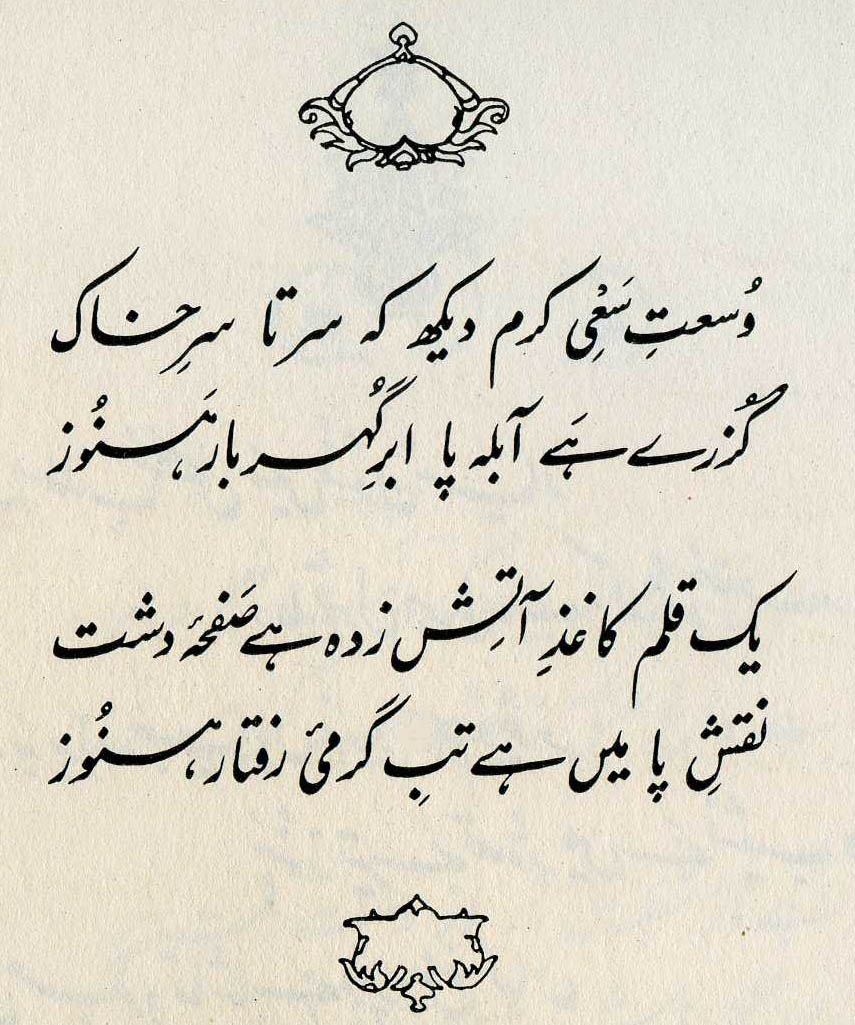 وُسعتِ سَعْیِ کرم دیکھ کہ سر تا سرِ خاک
گُزرے ہَے آبلہ پا ابرِ گُہر بار ہَنُوز
یک قلم کاغذِ آتِش زدہ ہے صَفحۂ دشت
نقشِ پا میں ہے تبِ گرمیٔ رفتار ہنُوز